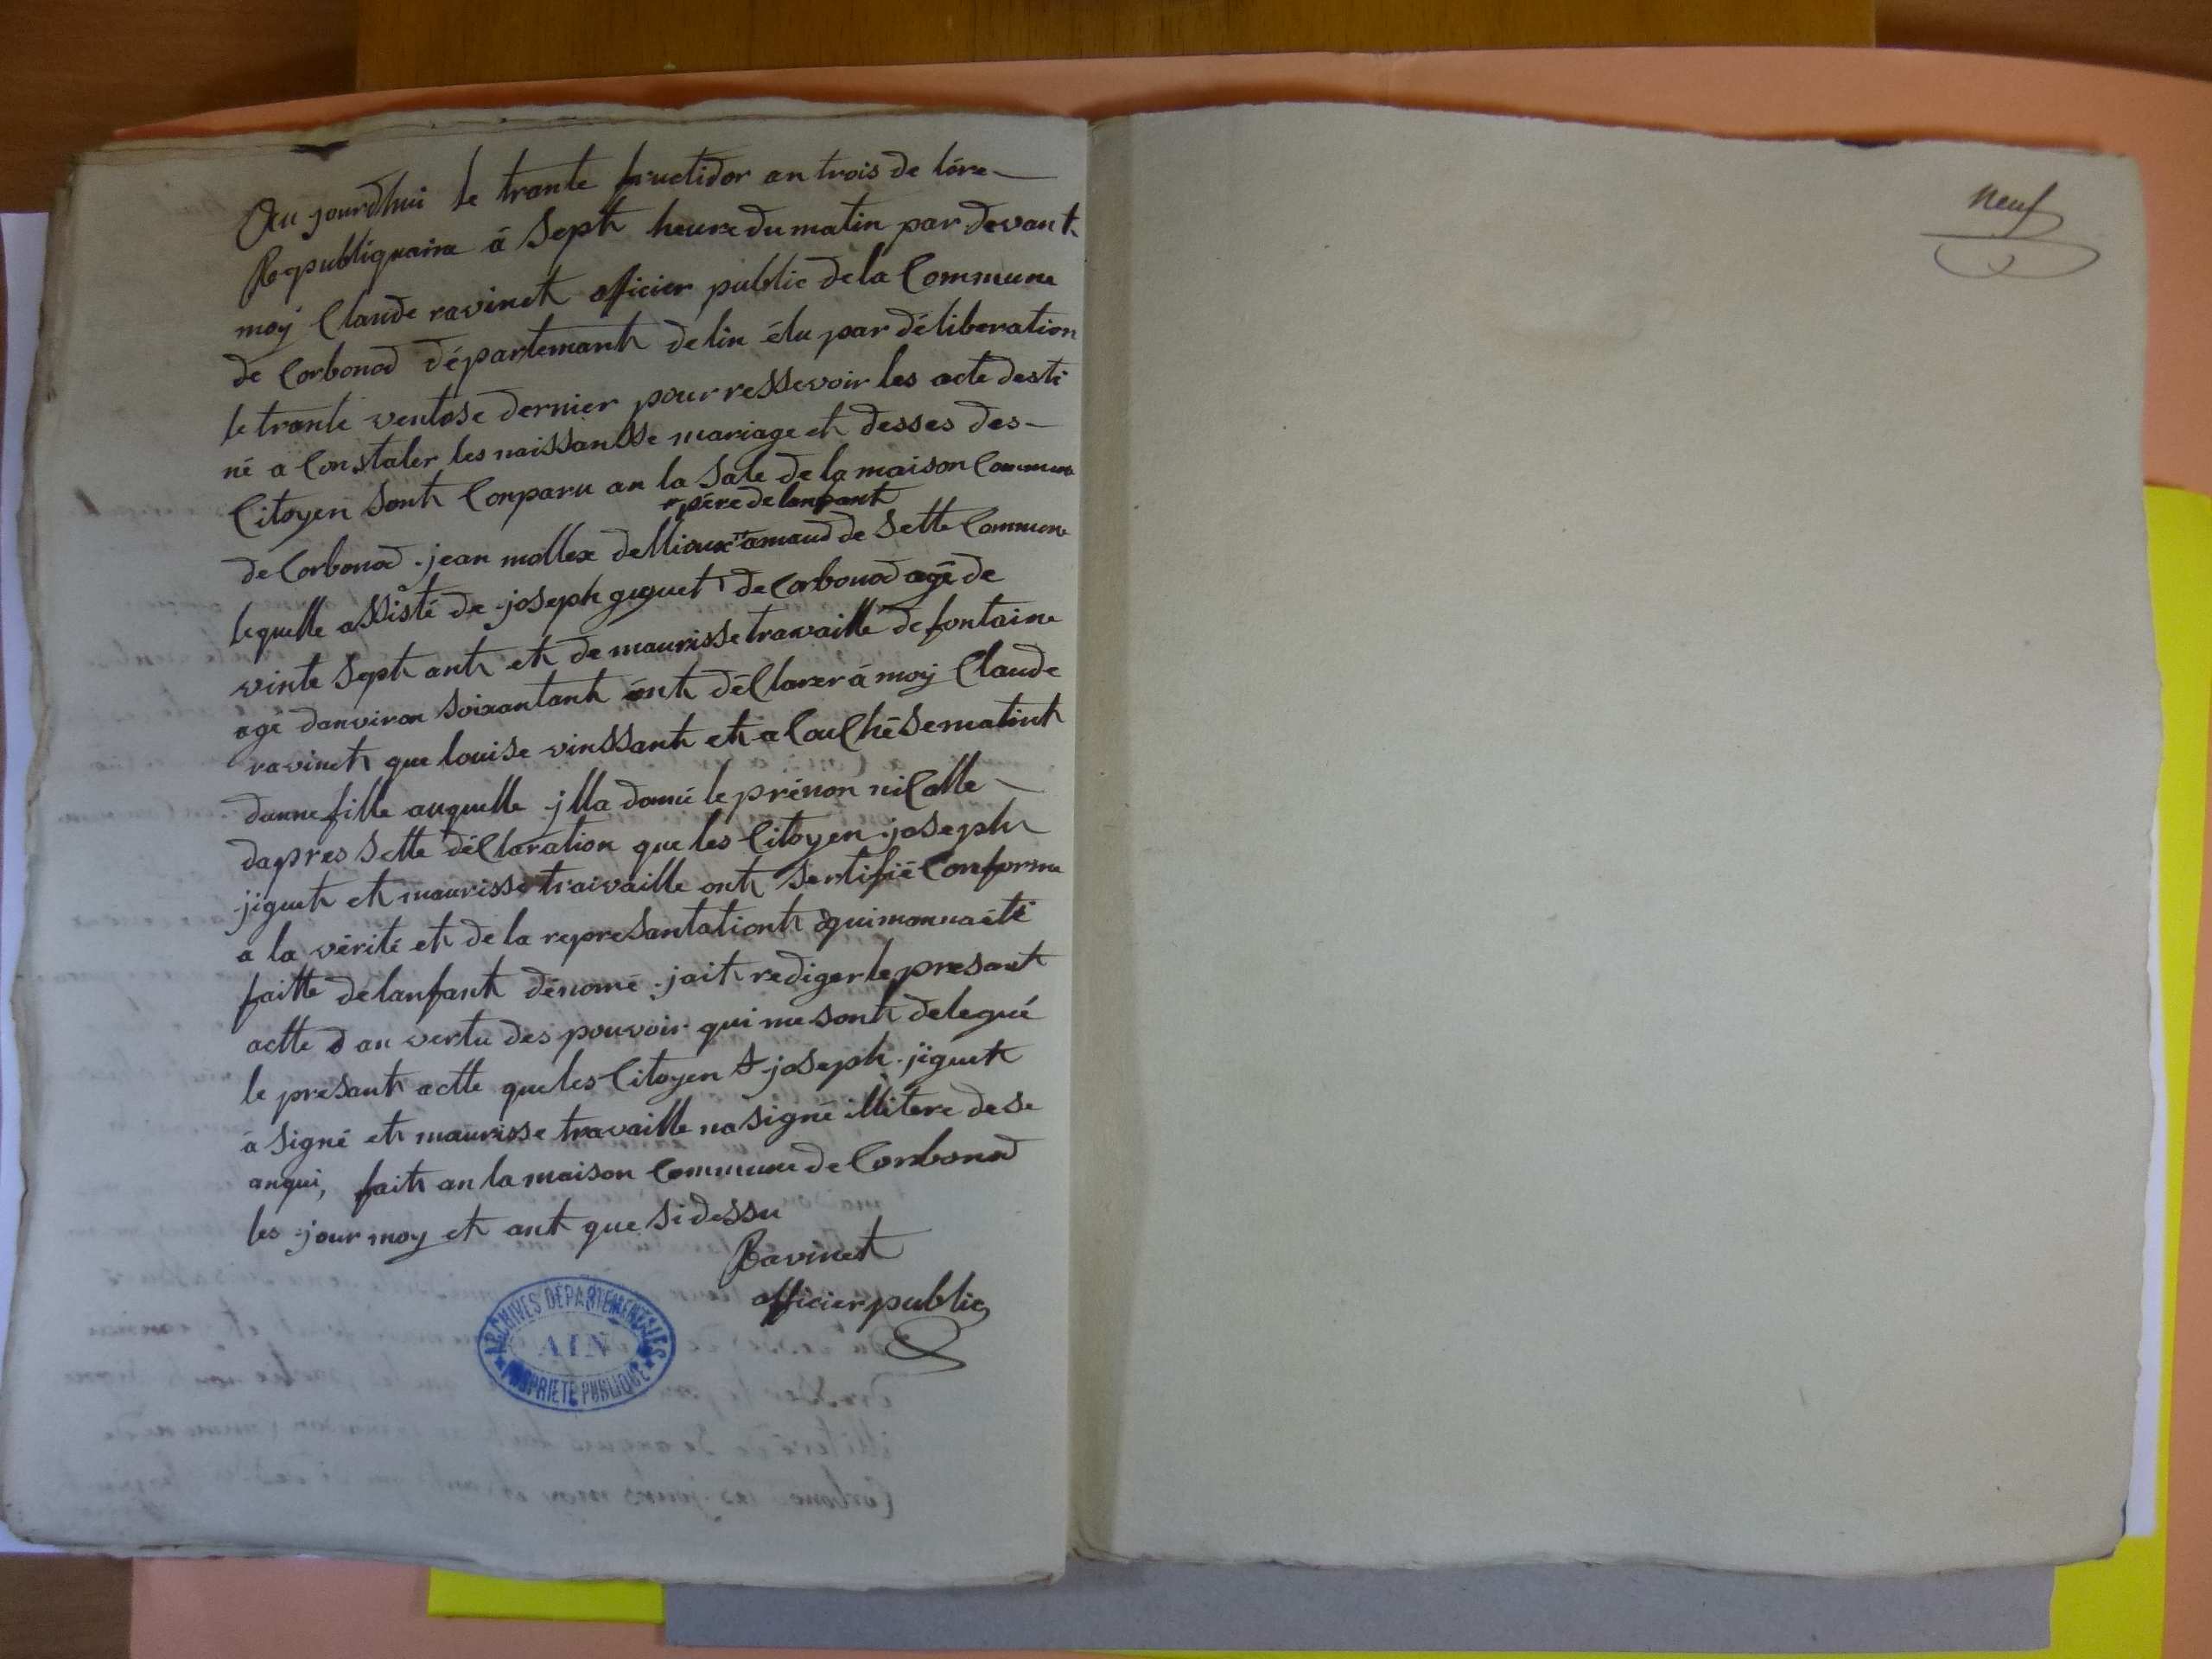 Au jourdhui le trante fructidor an trois de lére
Republiquaire á Sept heure du matin par devant
moÿ Claude ravinet officier public de la Commune
de Corbonod département de lin élu par déliberation
le trante ventose dernier pour ressevoir les acte desti
né a Constater les naissansse mariage et desses des
Citoyen sont Conparu an la Sale de la maison Commune
père de lanfant
de Corbonod jean mollex de amaud de Sette Commune
lequelle assisté de joseph giguet de Corbonod agé de
vinte Sept ant et de maurisse travaille de fontaine
age danviron Soixantant ont déClarer á moÿ Claude
ravinet que louise vinssant et a CouChé Sematint
dunne fille auquelle illa donné le prénon niColle
dapres Sette déClaration que les Citoyen joseph
jiguet et maurisse traivaille ont Sertifié Conforme
a la vérité et de la represantationt qui manna été
faitte delanfant dénomé jait rediger le presant
actte an vertu des pouvoir qui me sont delegué
le presant actte que les Citoyen joseph jiguet
á Signé et maurisse travaille na signé illitere de se
anqui, fait an la maison Commune de Corbonod
les jour moy et ant que Si dessu
Ravinet
officier public
ARCHIVES DÉPARTEMENTALES
AIN
PROPRIÉTÉ PUBLIQUE
neuf